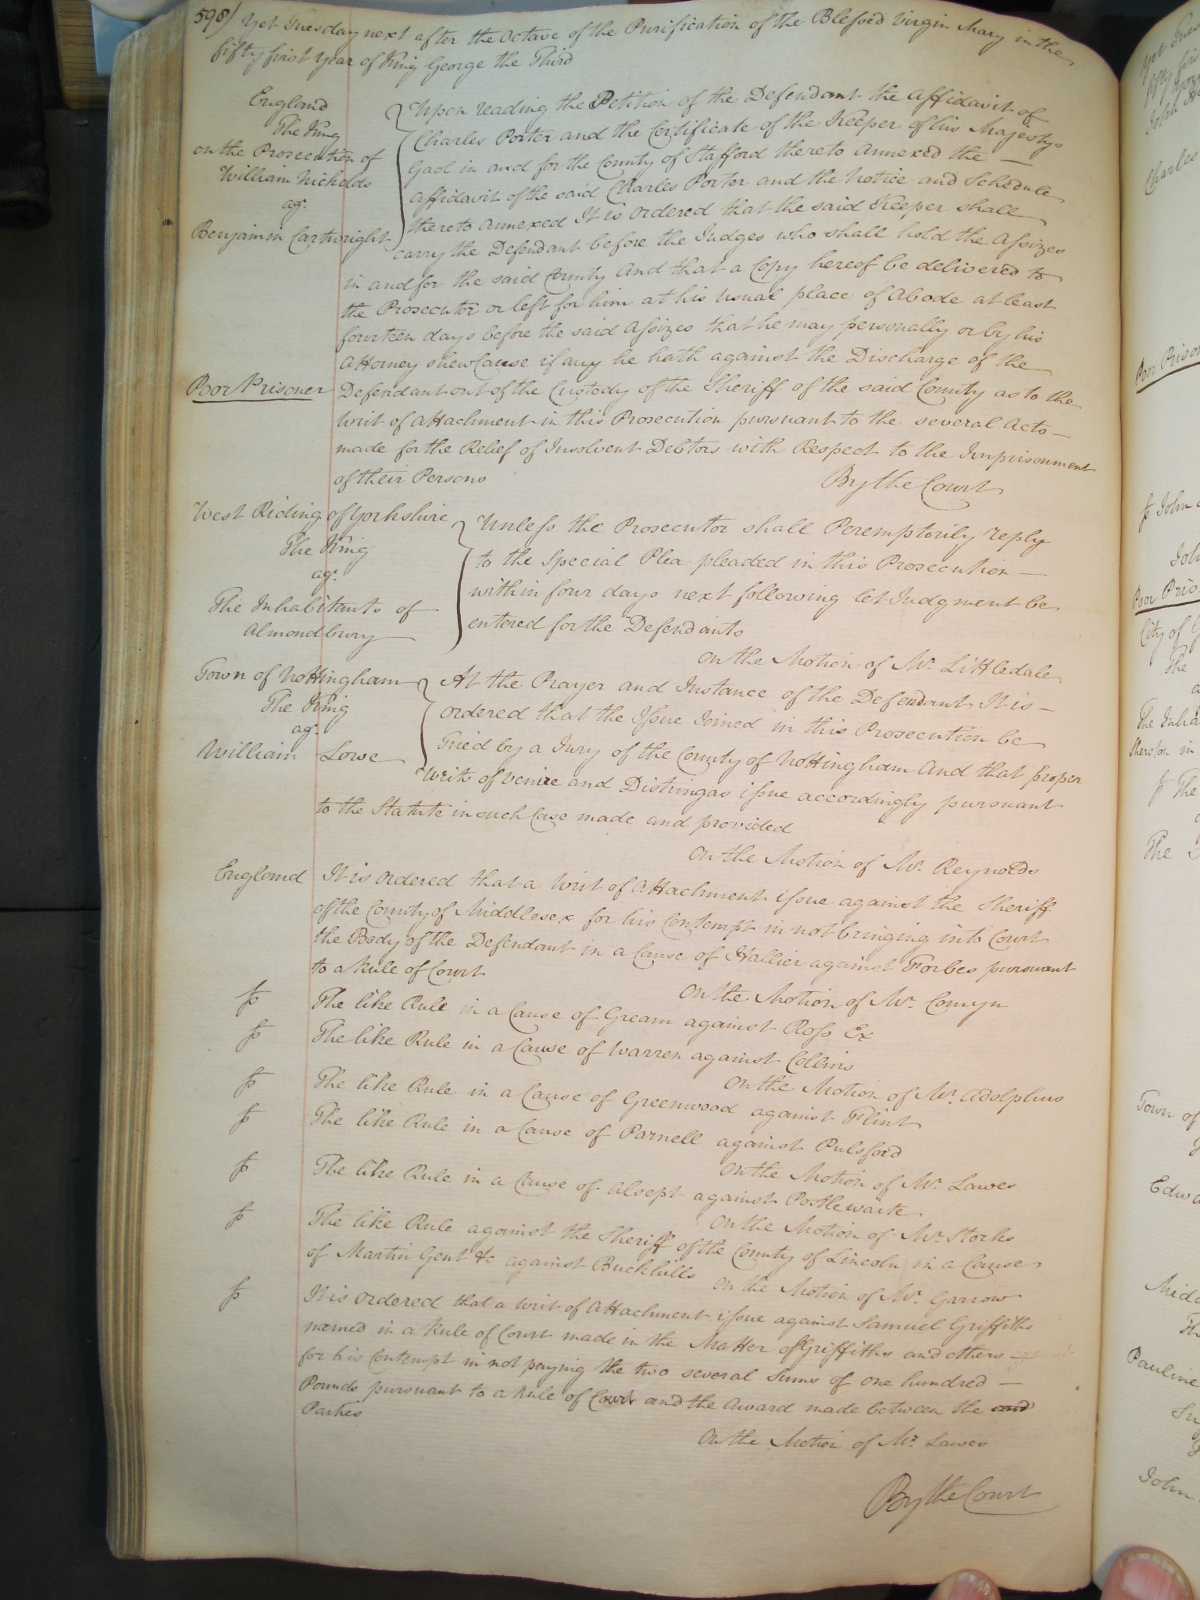 598/ Yet Tuesday next after the Octave of the Purification of the Blessed Virgin Mary in the
fifty first year of King George the Third
England
The King
on the Prosecution of
William Nicholds
agt.
Benjamin Cartwright
Upon reading the Petition of the Defendant the Affidavit of
Charles Porter and the Certificate of the Keeper of his Majestys
Gaol in and for the County of Stafford thereto annexed the
Affidavit of the said Charles Porter and the Notice and Schedule
thereto annexed It is ordered that the said Keeper shall
carry the Defendant before the Judges who shall hold the Assizes
in and for the said County And that a Copy hereof be delivered to
the Prosecutor or left for him at his usual place of Abode at least
fourteen days before the said Assizes that he may personally or by his
Attorney shew Cause if any he hath against the Discharge of the
Poor Prisoner
Defendant out of the Custody of the Sheriff of the said County as to the
Writ of Attachment in this Prosecution pursuant to the several Acts
made for the Relief of Insolvent Debtors with Respect to the Imprisonment
of their Persons
By the Court
West Riding of Yorkshire
The King
agt.
The Inhabitants of
Almondbury
Unless the Prosecutor shall Peremptorily reply
to the Special Plea pleaded in this Prosecution
within four days next following let Judgment be
entered for the Defendants
On the Motion of Mr. Littledale
Town of Nottingham
The King
agt.
William Lowe
At the Prayer and Instance of the Defendant It is
ordered that the Issue Joined in this Prosecution be
Tried by a Jury of the County of Nottingham And that proper
Writs of Venire and Distringas issue accordingly pursuant
to the Statute in such Case made and provided
On the Motion of Mr. Reynolds
England
It is ordered that a Writ of Attachment issue against the Sheriff
of the County of Middlesex for his Contempt in not bringing into Court
the Body of the Defendant in a Cause of Hallier against Forbes pursuant
to a Rule of Court
On the Motion of Mr. Comyn
The like Rule in a Cause of Gream against Ross Ex
The like Rule in a Cause of Warren against Collins
On the Motion of Mr. Adolphus
The like Rule in a Cause of Greenwood against Flint
The like Rule in a Cause of Parnell against Pulsford
On the Motion of Mr. Lawes
The like Rule in a Cause of Alsept against Postlewaite
On the Motion of Mr. Storks
The like Rule against the Sheriff of the County of Lincoln in a Cause
of Martin Gent &c against Buckhills
On the Motion of Mr. Garrow
It is ordered that a Writ of Attachment issue against Samuel Griffiths
named in a Rule of Court made in the Matter of Griffiths and others
for his Contempt in not paying the two several Sums of one hundred
Pounds pursuant to a Rule of Court and the Award made between the and
Parties
On the Motion of Mr. Lawes
By the Court